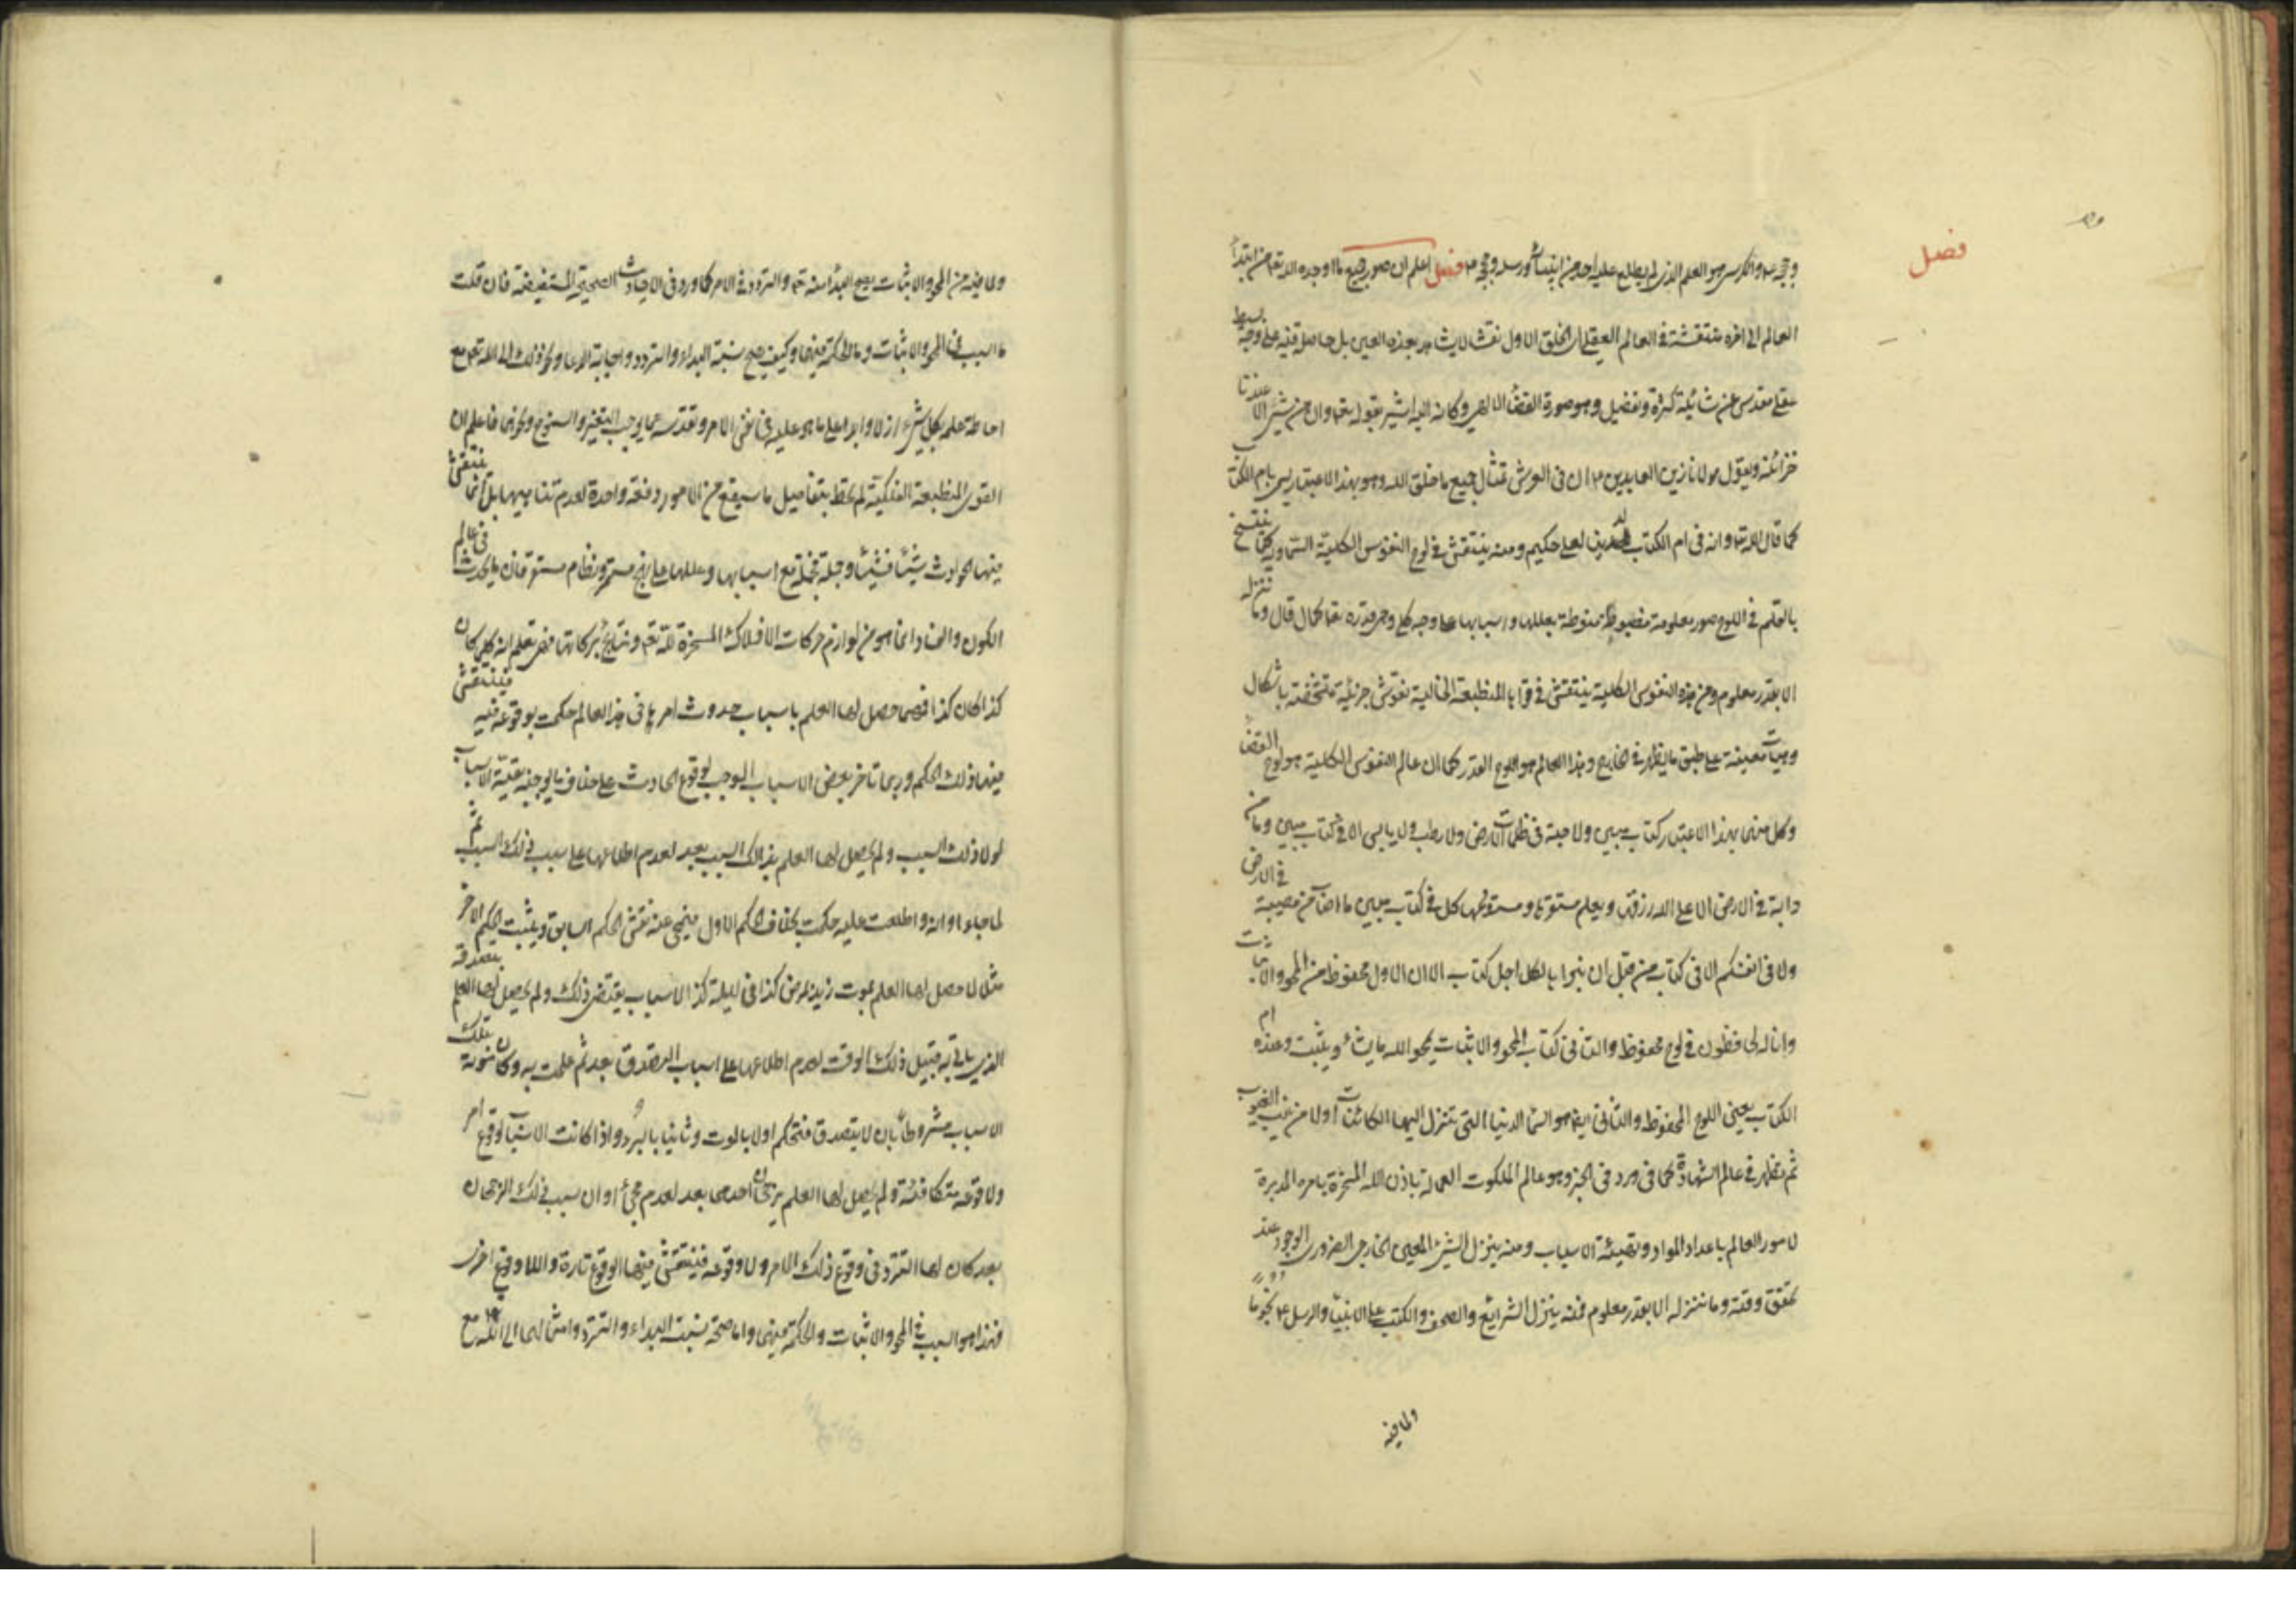 فصل
وحججه والكرسي هو العلم الذي لم يطلع عليه احد من انبيائه ورسله وحججه فصل اعلم ان صور جميع ما اوجده الله تعه من ابتداء
العالم الى اخره منتقشة في العالم العقلي الخلق الاول نقشا لا يشاهد بهذه العين بل حاصلة فيه على وجه بسيط
عقلي مقدس عن شائبة كثرة وتفصيل وهو صورة القضاء الالهي وكانه اليه اشير بقوله تعه وان من شيء الا عندنا
خزائنه وبقول مولانا زين العابدين ان في العرش تمثال جميع ما خلق الله وهو بهذا الاعتبار يسمى بام الكتاب
كما قال الله تعا وانه في ام الكتاب لدينا لعلي حكيم ومنه ينتقش في لوح النفوس الكلية السماوية كما ينتسخ
بالقلم في اللوح صور معلومة مضبوطة منوطة بعللها واسبابها على وجه كلي وهو قدره تعا كما قال وما ننزله
الا بقدر معلوم ومن هذه النفوس الكلية ينتقش في قواها المنطبعة الخيالية نقوش جزئية متشخصة باشكال
وهيئات معينة على طبق ما يظهر في الخارج وهذا العالم هو لوح القدر كما ان عالم النفوس الكلية هو لوح القضاء
وكل منهما بهذا الاعتبار كتاب مبين ولا حبة في ظلمات الارض ولا رطب ولا يابس الا في كتاب مبين وما من
دابة في الارض الا على الله رزقها ويعلم مستقرها ومستودعها كل في كتاب مبين ما اصاب من مصيبة في الارض
ولا في انفسكم الا في كتاب من قبل ان نبراها لكل اجل كتاب الا ان الاول محفوظ من المحو والاثبات
وانا له لحافظون في لوح محفوظ والثاني كتاب المحو والاثبات يمحو الله ما يشاء ويثبت وعنده ام
الكتاب يعني اللوح المحفوظ والثاني ايضا هو السماء الدنيا التي تتنزل اليها الكائنات اولا من غيب الغيوب
ثم تظهر في عالم الشهادة كما في ورد في الخبر وهو عالم الملكوت العمالة باذن الله المسخرة بامره المدبرة
لامور العالم باعداد المواد وتهيئة الاسباب ومنه ينزل الشيء المعين الخارجي الضروري الوجود عند
تحقق وقته وما ننزله الا بقدر معلوم فمنه ينزل الشرايع والصحف والكتب على الانبياء والرسل ع نجوما
ولما فيه
ولما فيه من المحو والاثبات يصح البداء منه تعه والتردد في الامر كما ورد في الاحاديث الصحيحة المستفيضة فان قلت
ما السبب في المحو والاثبات وما الحكمة فيهما وكيف يصح نسبة البداء والتردد واجابة الدعاء ونحو ذلك الى الله تعه مع
احاطة علمه بكل شيء ازلا وابدا على ما هو عليه في نفس الامر وتقدسه عما يوجب التغير والسنوح ونحوهما فاعلم ان
القوى المنطبعة الفلكية لم تحط بتفاصيل ما سيقع من الامور دفعة واحدة لعدم تناهيها بل انما ينتقش
فيها الحوادث شيئا فشيئا وجملة فجملة مع اسبابها وعللها على نهج مستمر ونظام مستقر فان ما يحدث في عالم
الكون والفساد انما هو من لوازم حركات الافلاك المسخرة لله تعه ونتايج بركاتها فهي تعلم انه كلما كان
كذا كان كذا فمهما حصل لها العلم باسباب حدوث امر ما في هذا العالم حكمت بوقوعه فيه فينتقش
فيها ذلك الحكم وربما تاخر بعض الاسباب الموجب لوقوع الحادث على خلاف ما يوجبه بقية الاسباب
لولا ذلك السبب ولم يحصل لها العلم بذلك السبب بعد لعدم اطلاعها على سبب ذلك السبب ثم
لما جاء اوانه واطلعت عليه حكمت بخلاف الحكم الاول فيمحى عنه نقش الحكم السابق ويثبت الحكم الاخر
مثلا لما حصل لها العلم بموت زيد بمرض كذا في ليلة كذا لاسباب يقتضي ذلك ولم يحصل لها العلم بتصدقه
الذي ياتي به قبيل ذلك الوقت لعدم اطلاعها على اسباب التصدق بعد ثم علمت به وكان موته بتلك
الاسباب مشروطا بان لا يتصدق فتحكم اولا بالموت وثانيا بالبرء واذا كانت الاسباب لوقوع امر
ولا وقوعه متكافئة ولم يحصل لها العلم برجحان احدهما بعد لعدم مجيء اوان سبب ذلك الرجحان
بعد كان لها التردد في وقوع ذلك الامر ولا وقوعه فينتقش فيها الوقوع تارة واللاوقوع اخرى
فهذا هو السبب في المحو والاثبات والحكمة فيهما واما صحة نسبة البداء والتردد وامثالهما الى الله تعه مع